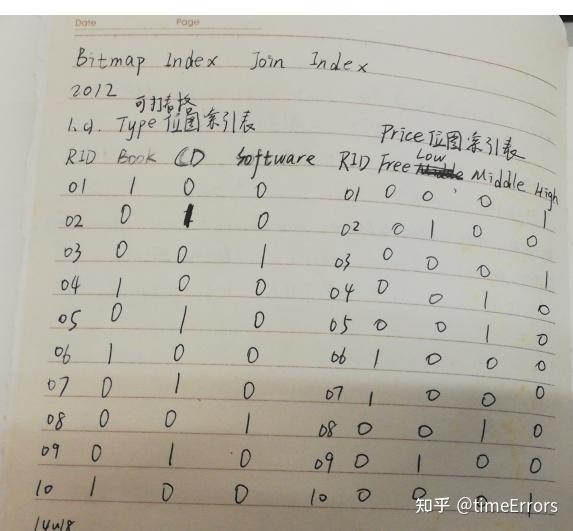 Date Page
Bitmap Index Join Index
2012
可打着找
1.a. Type位图索引表
Price位图索引表
RID Book CD Software
RID Free Low Middle High
01 1 0 0 01 0 0 0 1
02 0 1 0 02 0 1 0 0
03 0 0 1 03 0 0 0 1
04 1 0 0 04 0 0 1 0
05 0 1 0 05 0 0 1 0
06 1 0 0 06 1 0 0 0
07 0 1 0 07 1 0 0 0
08 0 0 1 08 0 0 1 0
09 0 1 0 09 0 1 0 0
10 1 0 0 10 0 0 0 1
知乎 @timeErrors